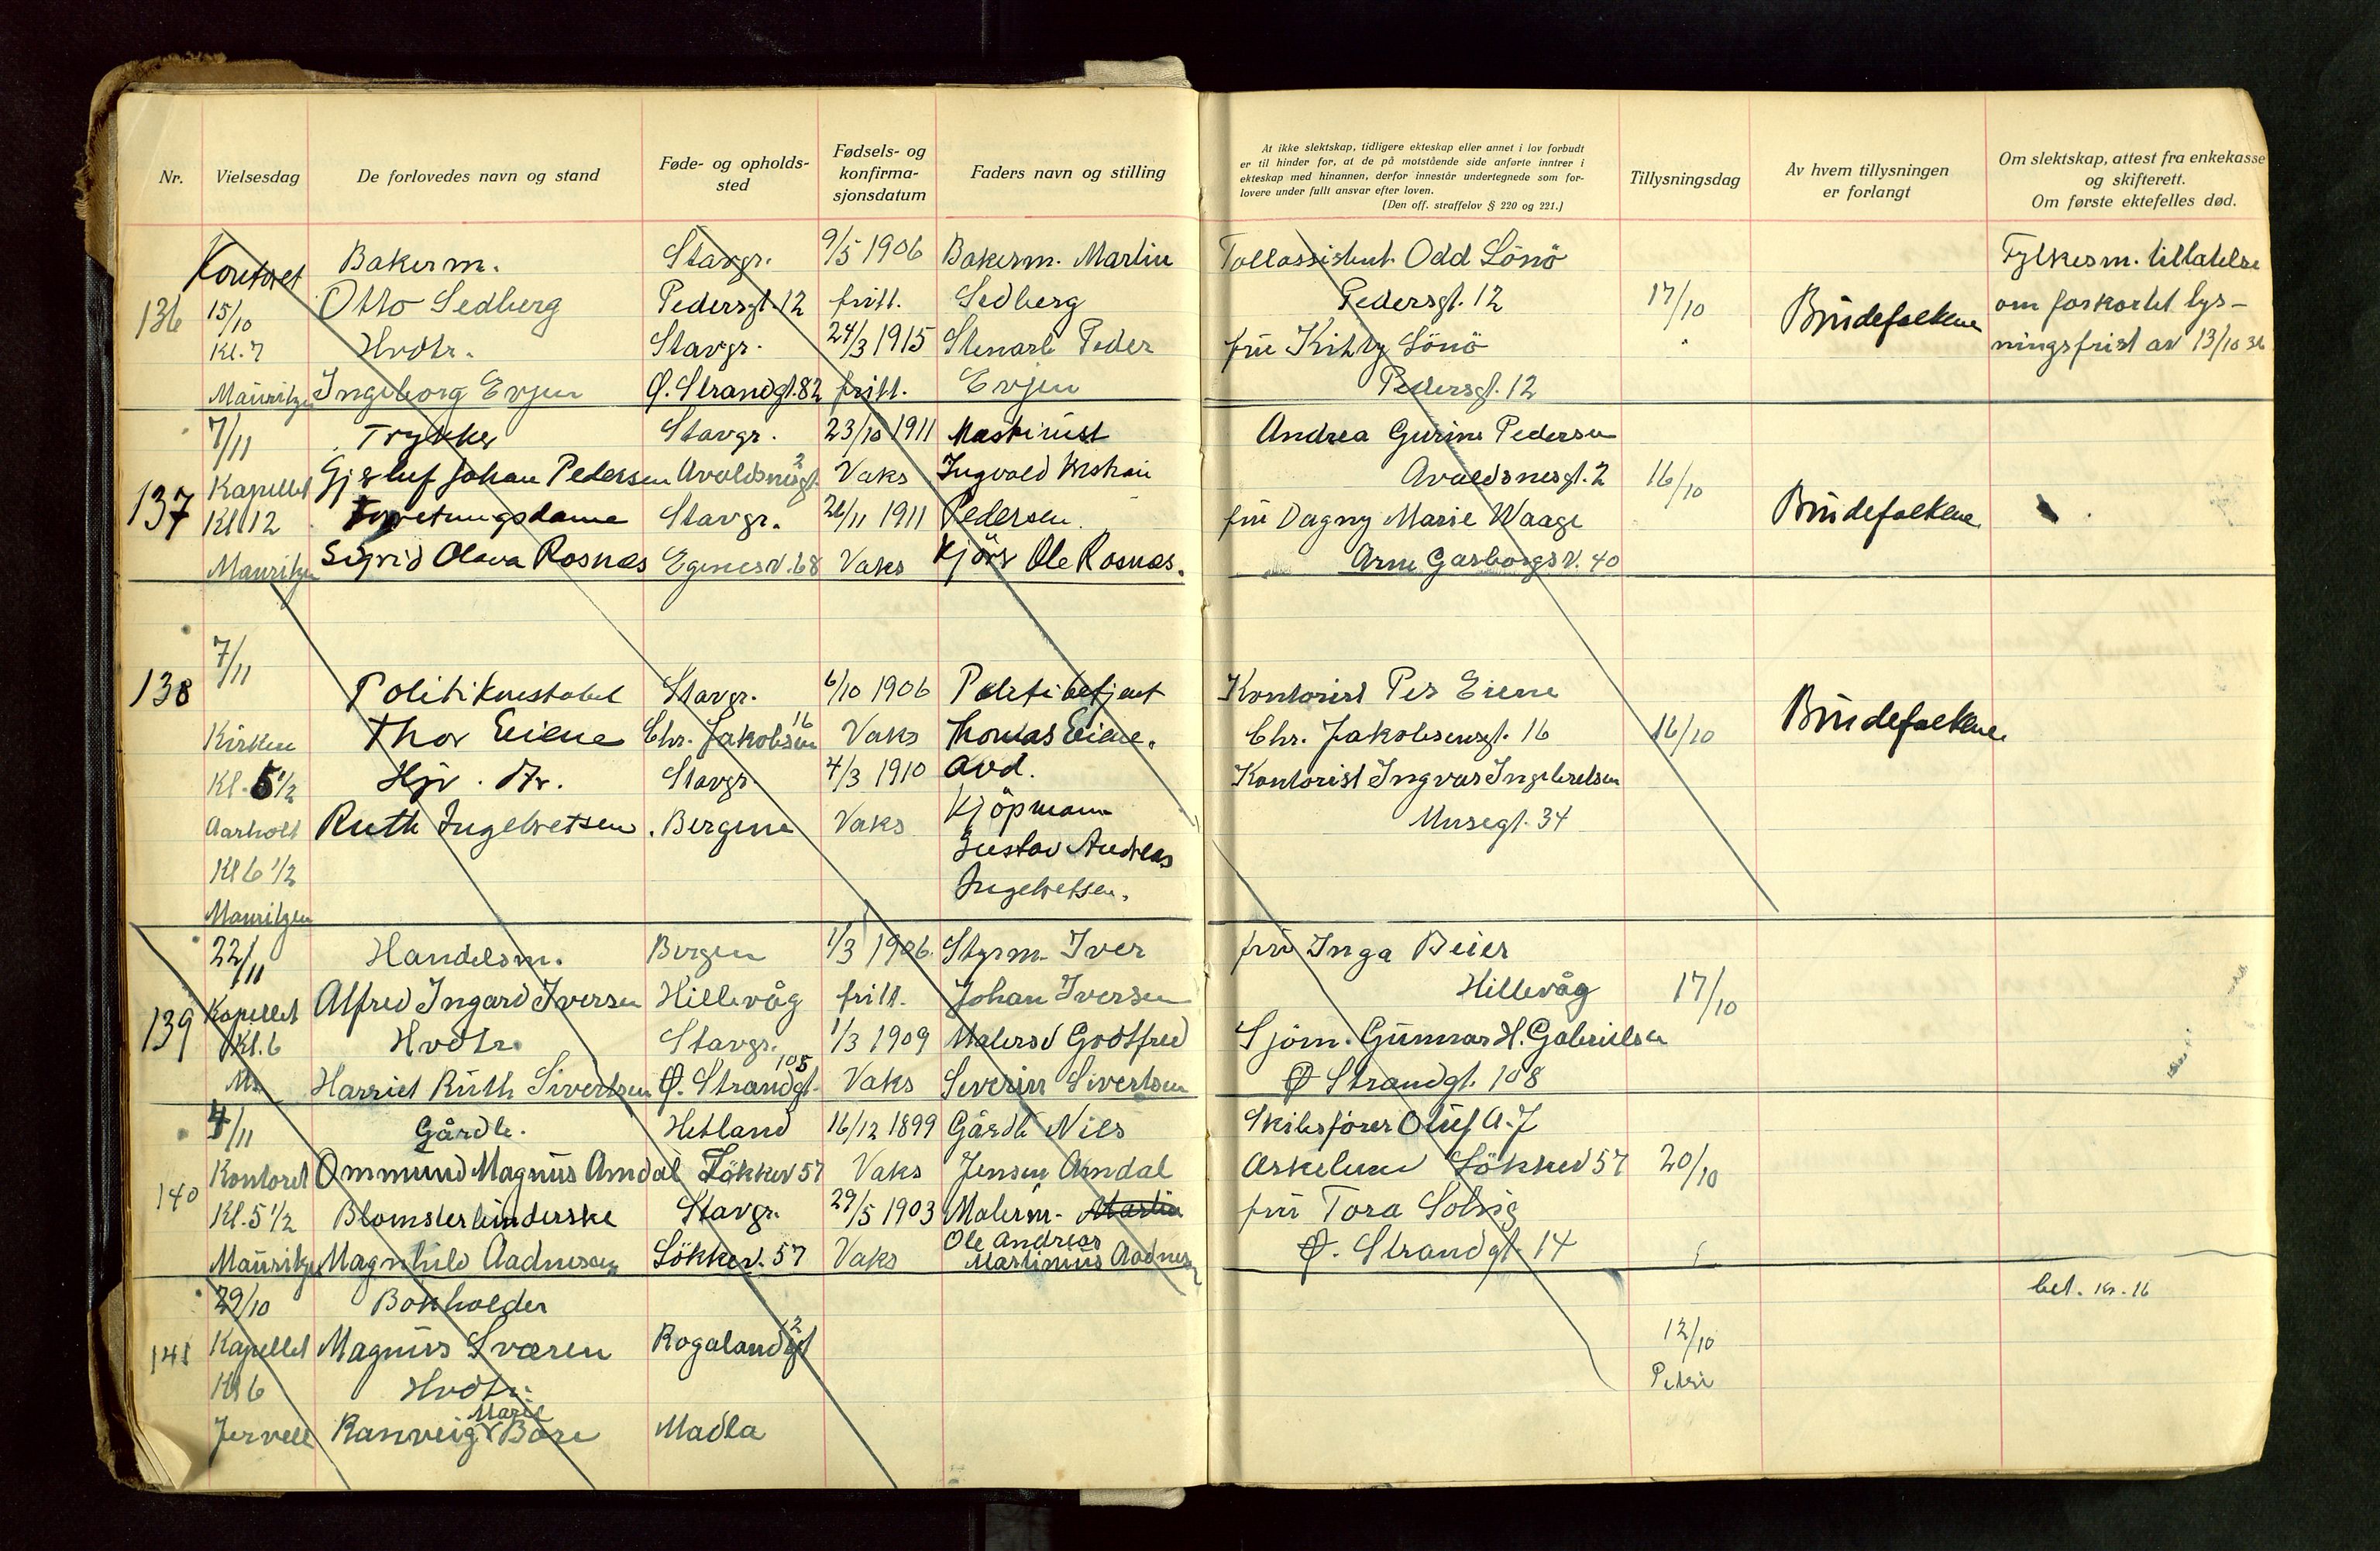 Nr.
Vielsesdag
De forlovedes navn og stand
Føde- og opholds-
sted
Fødsels- og
konfirma-
sjonsdatum
Faders navn og stilling
At ikke slektskap, tidligere ekteskap eller annet i lov forbudt
er til hinder for, at de på motstående side anførte inntrer i
ekteskap med hinannen, derfor innestår undertegnede som for-
lovere under fullt ansvar efter loven.
(Den off. straffelov § 220 og 221.)
Tillysningsdag
Av hvem tillysningen
er forlangt
Om slektskap, attest fra enkekasse
og skifterett.
Om første ektefelles død.
Kontoret Bakerm. Stavgr. 9/5 1906 Bakerm. Martin Tollassistent Odd Lönö Fylkesm. tillatelse
136 15/10 Otto Sedberg Pedersgt. 12 fritt. Sedberg Pedersgt. 12 17/10 Brudefolkene om forkortet lys-
Kl. 7 Hvdtr. Stavgr. 24/3 1915 Stenarb Peder frü Kitty Lönö ningsfrist av 13/10 36
Mauritzen Ingeborg Evjen Ø. Strandgt. 82 fritt. Evjen Pedersgt. 12
7/11 Trykker Stavgr. 23/10 1911 Maskinist Andrea Gurine Pedersen
Kapellet Johan Pedersen Avaldsnesgt. 2 Vaks Ingvald Avaldsnesgt. 2 16/10
137 Kl 12 Forretningsdame Stavgr. 26/11 1911 Pedersen. frü Dagny Marie Waage Brudefolkene
Mauritzen Sigrid Olava Rosnes Egenesv. 68 Vaks Kjörer Ole Rosnes. Arne Garborgs v. 40
7/11
138 Politikonstabel Stavgr. 6/10 1906 Politibetjent Kontorist Per Eiene
Kirken Thor Eiene Chr. Jakobsen 16 Vaks Thomas Eiene. Chr. Jakobsensgt. 16 16/10 Brudefolkene
Kl. 5 1/2 Stavgr. 4/3 1910 avd. Kontorist Ingvar Ingebretsen
Aarholt Ruth Ingebretsen. Bergene Vaks Kjöpmann Musegt. 34
Kl 6 1/2 Gustav Andreas
Mauritzen Ingebretsen.
22/11 Handelsm. Bergen 1/3 1906. Styrm. Iver frü Inga Beier
Kapellet Alfred Ingard Iversen Hillevåg fritt. Johan Iversen Hillevåg 17/10
139 Kl. 6 Hvdtr. Stavgr. 1/3 1909 Godtfred Sjöm. Gunnar H. Gabrielsen
Ma Harriet Ruth Sivertsen Ø. Strandgt. 108 Vaks Severin Sivertsen Ø Strandgt. 108
4/11 Gårdb. Hetland 16/12 1899 Gårdb Nils Skibsförer Oluf A. J
Kontoret Ommund Magnus Amdal Lökkev 57 Vaks Jensen Amdal Askelund Lökkev 57 20/10
140 Kl. 5 1/2 Blomsterbinderske Stavgr. 29/5 1903 Malerm. Martin frü Tora Solvig
Mauritzen Magnhild Aadnesen Lökkev. 57 Vaks Ole Andreas Martinius Aadnesen Ø. Strandgt. 14
29/10 Bokholder bet. kr. 16
141 Kapellet Magnus Sværen Rogalandsgt 2 12/10
Kl 6 Hvdtr. Petri
Jervell Ranveig Marie Bore Madla